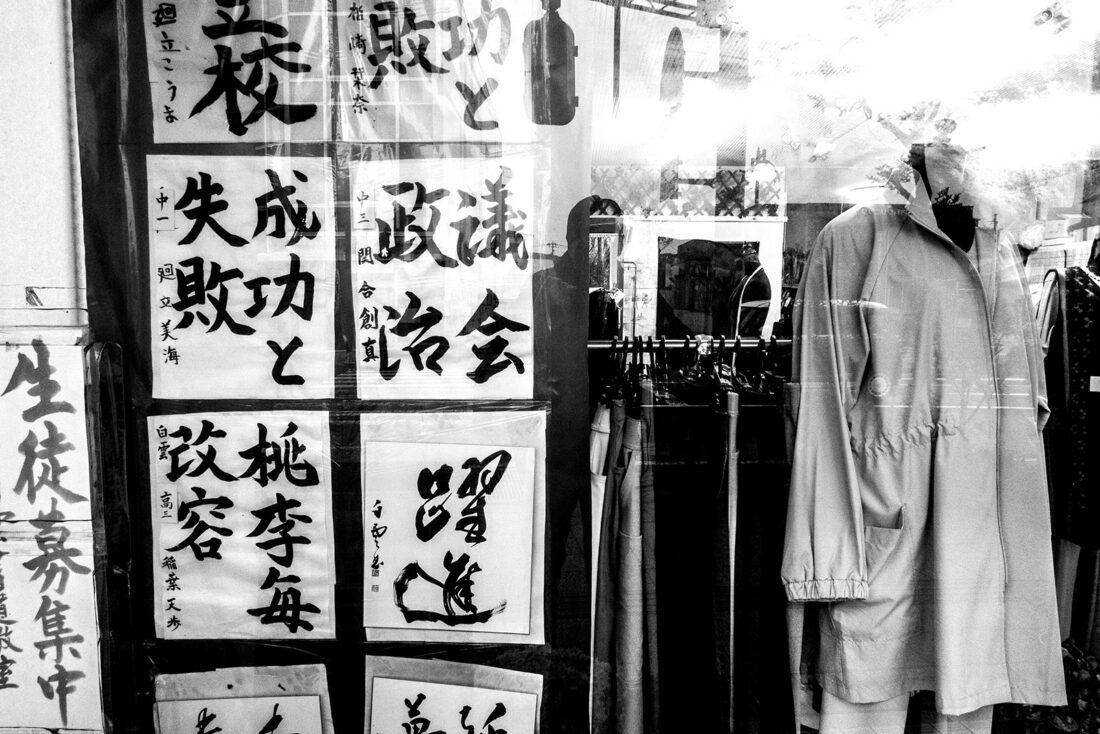 功と
敗
立校
廻立こうま
議会
政治
中三 関合創真
成功と
失敗
中一 廻立美海
躍進
桃李毎
改容
白雲 高三 稲葉天歩
生徒募集中
道教室